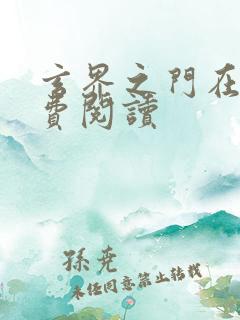 玄界之门在
費閱讀
孫尭
未经同意禁止转载